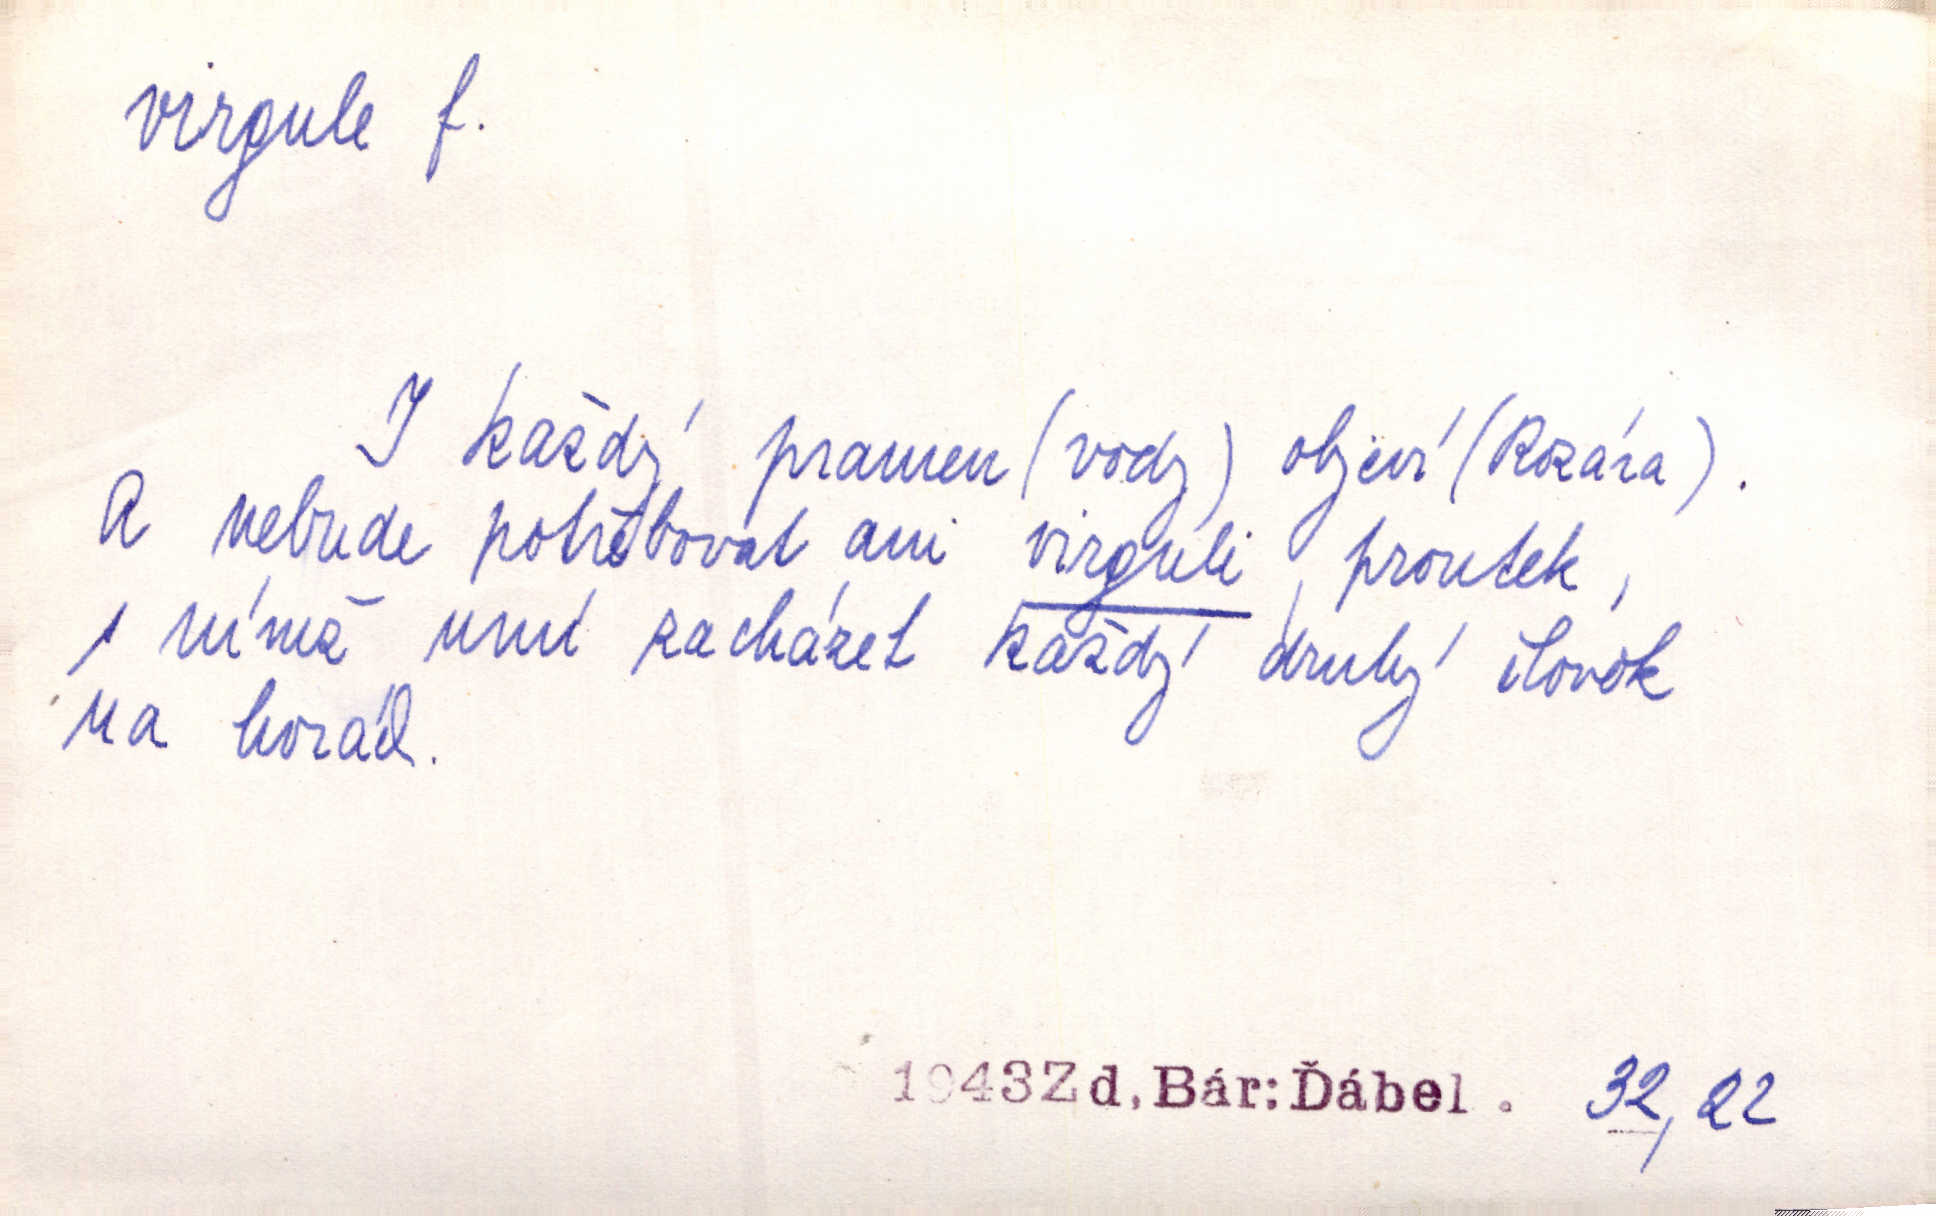 virgule f.
I každý pramen (vody) objeví (Rozára).
A nebude potřebovat ani virguli, proutek,
s nímž umí zacházet každý druhý člověk
na horách.
1943Zd, Bár: Ďábel. 32, 22